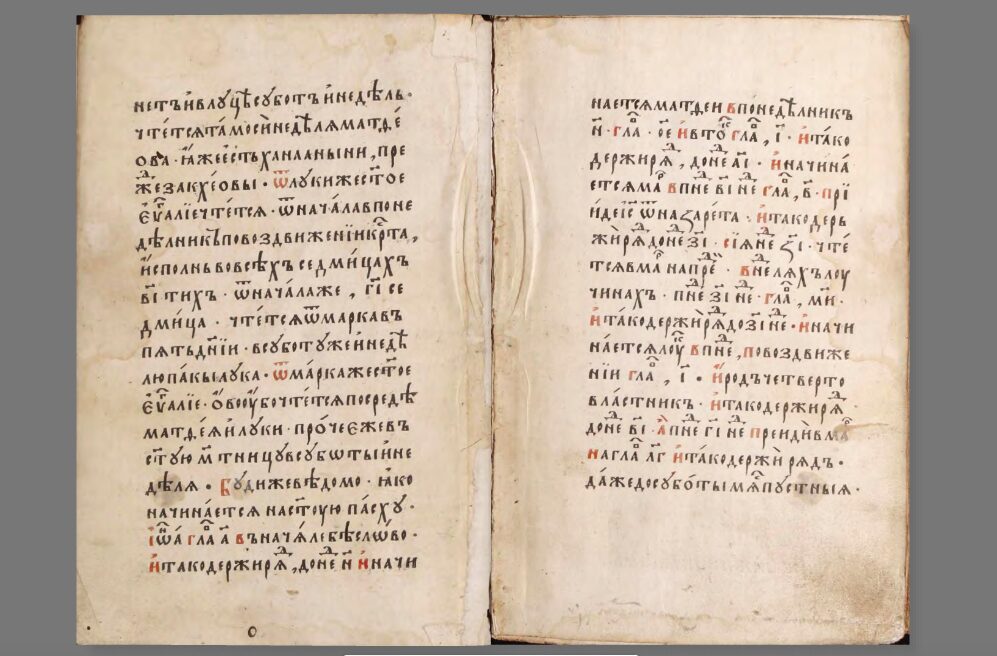 нетъ и в луцѣ суботъ и недѣль ·
чте́тсѧ тамо сѝ недѣлѧ матде́
ова · ꙗ҆же е҆сть ханланыни , пре
же закхе́овы · ѿ луки же ст҃ое
є҆ѵа҃лїе чте́тсѧ · ѿ нача́ла в поне
дѣлник по воздвиженїи кр҃та ,
и҆сполнь во всѣхъ седми́цахъ
в҃і тихъ · ѿ нача́ла же , г҃і се
дми́ца · чте́тсѧ ѿ марка въ
пѧть дн҃їи · в суботу же и недѣ
лю пакы лука · ѿ ма́рка же ст҃ое
є҆ѵа҃лїе · ѻ҆бою у҆бо чте́тсѧ посредѣ
матде́ѧ и луки · про́чеє же въ
ст҃ую м҃тницу в суботы и не
дѣлѧ · Буди же вѣдомо · ꙗ҆ко
начина́етсѧ на ст҃ую па́сху ·
і҆ѡ҃а гла҃ а҃ въ нача́лѣ бѣ сло́во ·
и҆ та́ко держи рѧⷣ , до неⷣ н҃ и҆ начи
наетсѧ матдеи в понедѣлник
н҃ · гла҃ · ѻ҃е и҆ вто҃ гла҃ , і҃ · и҆ тако
держи рѧⷣ , до неⷣ а҃і · и҆ начина́
етсѧ ма҃ в пнⷣе в҃і неⷣ гла҃ , в҃ · прїи
и҆де і҃с ѿ назаре́та · и҆ тако дерь
жи рѧⷣ до неⷣ з҃і · сїѧ неⷣ з҃і · чте́
тсѧ в ма҃ напреⷣ · в нелѧхъ лоу
чинахъ · пнⷣе з҃і неⷣ · гла҃ , м҃и ·
и҆ та́ко держи́ рѧⷣ до з҃і неⷣ · и҆ начи
на́етсѧ лоу҃ в пнⷣе , по воздвиже
нїи гла҃ , і҃ · и҆родъ четверто
вла́стникъ · и҆ тако держи рѧⷣ ·
до неⷣ в҃і · а҆ пнⷣе г҃і неⷣ преиди́ в ма҃
на гла҃ л҃г и҆ та́ко держи̇ рѧдъ ·
да́же до субо́ты мѧ҃пу́стныѧ ·